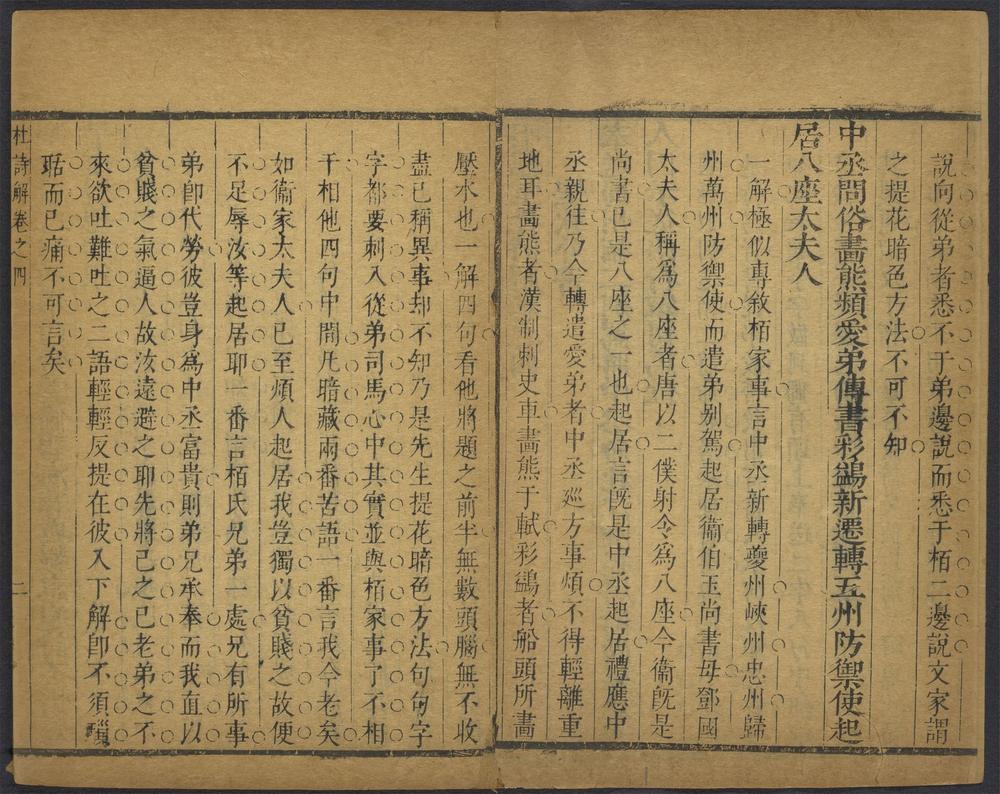 說向從弟者悉不于弟邊說而悉于栢二邊說文家謂
之提花暗色方法不可不知
中丞問俗畫熊頻愛弟傳書彩鷁新遷轉五州防禦使起
居八座太夫人
一解極似專敘栢家事言中丞新轉夔州峽州忠州歸
州萬州防禦使而遣弟别駕起居衞伯玉尚書母鄧國
太夫人稱爲八座者唐以二僕射令爲八座今衞旣是
尚書已是八座之一也起居言旣是中丞起居禮應中
丞親往乃今轉遣愛弟者中丞廵方事煩不得輕離重
地耳畫熊者漢制刺史車畫熊于軾彩鷁者船頭所畫
壓水也一解四句看他將題之前半無數頭腦無不收
盡已稱異事却不知乃是先生提花暗色方法句句字
字都要刺入從弟司馬心中其實並與栢家事了不相
干相他四句中間凡暗藏兩番苦語一番言我今老矣
如衞家太夫人已至煩人起居我豈獨以貧賤之故便
不足辱汝等起居耶一番言栢氏兄弟一處兄有所事
弟卽代勞彼豈身爲中丞富貴則弟兄承奉而我直以
貧賤之氣逼人故汝遠避之耶先將己之已老弟之不
來欲吐難吐之二語輕輕反提在彼入下解卽不須瑣
聒而已痛不可言矣
杜詩解卷之四
二